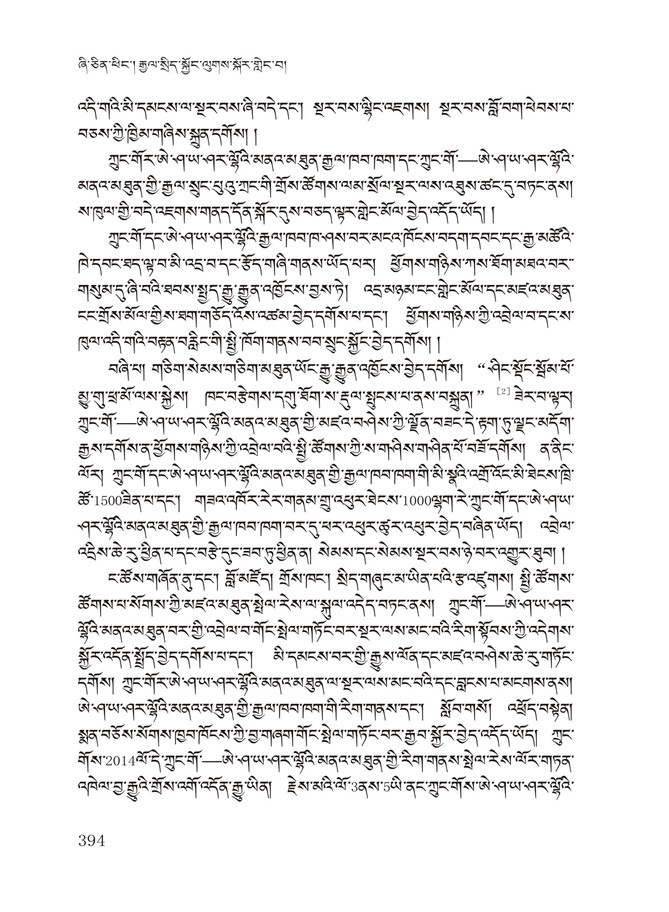 ཞི་ཅིན་ཕིང་། རྒྱལ་སྲིད་སྐྱོང་ལུགས་སྐོར་གླེང་བ།
འདི་གའི་མི་དམངས་ལ་སྔར་བས་ཞི་བདེ་དང་། སྔར་བས་ལྷིང་འཇགས། སྔར་བས་བློ་བག་ཕེབས་པ་
བཅས་ཀྱི་ཁྱིམ་གཞིས་སྐྲུན་དགོས།།
ཀྲུང་གོར་ཨེ་ཤ་ཡ་ཤར་ལྷོའི་མནའ་མཐུན་རྒྱལ་ཁབ་ཁག་དང་ཀྲུང་གོ་—ཨེ་ཤ་ཡ་ཤར་ལྷོའི་
མནའ་མཐུན་གྱི་རྒྱལ་སྲུང་པུའུ་ཀྲང་གི་གྲོས་ཚོགས་ལམ་སྲོལ་སྔར་ལས་འཐུས་ཚང་དུ་བཏང་ནས།
ས་ཁུལ་གྱི་བདེ་འཇགས་གནད་དོན་སྐོར་དུས་བཅད་ལྟར་གླེང་མོལ་བྱེད་འདོད་ཡོད།།
ཀྲུང་གོ་དང་ཨེ་ཤ་ཡ་ཤར་ལྷོའི་རྒྱལ་ཁབ་ཁ་ཤས་བར་མངའ་ཁོངས་བདག་དབང་དང་རྒྱ་མཚོའི་
ཁེ་དབང་ཐད་ལྟ་བ་མི་འདྲ་བ་དང་རྩོད་གཞི་གནས་ཡོད་པར། ཕྱོགས་གཉིས་ཀས་ཐོག་མཐའ་བར་
གསུམ་དུ་ཞི་བའི་ཐབས་སྤྱད་རྒྱུ་རྒྱུན་འཁྱོངས་བྱས་ཏེ། འདྲ་མཉམ་ངང་གླེང་མོལ་དང་མཛའ་མཐུན་
ངང་གྲོས་མོལ་གྱིས་ཐག་གཅོད་འོས་འཚམ་བྱེད་དགོས་པ་དང་། ཕྱོགས་གཉིས་ཀྱི་འབྲེལ་བ་དང་ས་
ཁུལ་འདི་གའི་བརྟན་བརླིང་གི་སྤྱི་ཁོག་གནས་བབ་སྲུང་སྐྱོང་བྱེད་དགོས།།
བཞི་པ། གཅིག་སེམས་གཅིག་མཐུན་ཡོང་རྒྱུ་རྒྱུན་འཁྱོངས་བྱེད་དགོས། “ཤིང་སྡོང་སྦོམ་པོ་
མྱུ་གུ་ཕྲ་མོ་ལས་སྐྱེས། ཁང་བརྩེགས་དགུ་ཐོག་ས་རྡུལ་སྤུངས་པ་ནས་བསྐྲུན།” [2] ཟེར་བ་ལྟར།
ཀྲུང་གོ་—ཨེ་ཤ་ཡ་ཤར་ལྷོའི་མནའ་མཐུན་གྱི་མཛའ་བཤེས་ཀྱི་ལྗོན་བཟང་དེ་རྟག་ཏུ་ལྗང་མདོག་
རྒྱས་དགོས་ན་ཕྱོགས་གཉིས་ཀྱི་འབྲེལ་བའི་སྤྱི་ཚོགས་ཀྱི་ས་གཤིས་གཤིན་པོ་བཟོ་དགོས། ན་ནིང་
ལོར། ཀྲུང་གོ་དང་ཨེ་ཤ་ཡ་ཤར་ལྷོའི་མནའ་མཐུན་གྱི་རྒྱལ་ཁབ་ཁག་གི་མི་སྣའི་འགྲོ་འོང་མི་ཐེངས་ཁྲི་
ཚོ་1500ཟིན་པ་དང་། གཟའ་འཁོར་རེར་གནམ་གྲུ་འཕུར་ཐེངས་1000ལྷག་རེ་ཀྲུང་གོ་དང་ཨེ་ཤ་ཡ་
ཤར་ལྷོའི་མནའ་མཐུན་གྱི་རྒྱལ་ཁབ་ཁག་བར་དུ་ཕར་འཕུར་ཚུར་འཕུར་བྱེད་བཞིན་ཡོད། འབྲེལ་
འདྲིས་ཆེ་རུ་ཕྱིན་པ་དང་བརྩེ་དུང་ཟབ་ཏུ་ཕྱིན་ན། སེམས་དང་སེམས་སྔར་བས་ཉེ་བར་འགྱུར་ཐུབ།།
ང་ཚོས་གཞོན་ནུ་དང་། བློ་མཛོད། གྲོས་ཁང་། སྲིད་གཞུང་མ་ཡིན་པའི་རྩ་འཛུགས། སྤྱི་ཚོགས་
ཚོགས་པ་སོགས་ཀྱི་མཛའ་མཐུན་སྤེལ་རེས་ལ་སྐུལ་འདེད་བཏང་ནས། ཀྲུང་གོ་—ཨེ་ཤ་ཡ་ཤར་
ལྷོའི་མནའ་མཐུན་བར་གྱི་འབྲེལ་བ་གོང་སྤེལ་གཏོང་བར་སྔར་ལས་མང་བའི་རིག་སྟོབས་ཀྱི་འདེགས་
སྐྱོར་འདོན་སྤྲོད་བྱེད་དགོས་པ་དང་། མི་དམངས་བར་གྱི་རྒྱུས་ལོན་དང་མཛའ་བཤེས་ཆེ་རུ་གཏོང་
དགོས། ཀྲུང་གོར་ཨེ་ཤ་ཡ་ཤར་ལྷོའི་མནའ་མཐུན་ལ་སྔར་ལས་མང་བའི་དང་བླངས་པ་མངགས་ནས།
ཨེ་ཤ་ཡ་ཤར་ལྷོའི་མནའ་མཐུན་གྱི་རྒྱལ་ཁབ་ཁག་གི་རིག་གནས་དང་། སློབ་གསོ། འཕྲོད་བསྟེན།
སྨན་བཅོས་སོགས་ཁྱབ་ཁོངས་ཀྱི་བྱ་གཞག་གོང་སྤེལ་གཏོང་བར་རྒྱབ་སྐྱོར་བྱེད་འདོད་ཡོད། ཀྲུང་
གོས་2014ལོ་དེ་ཀྲུང་གོ་—ཨེ་ཤ་ཡ་ཤར་ལྷོའི་མནའ་མཐུན་གྱི་རིག་གནས་སྤེལ་རེས་ལོར་གཏན་
འཁེལ་བྱ་རྒྱུའི་གྲོས་འགོ་འདོན་རྒྱུ་ཡིན། རྗེས་མའི་ལོ་3ནས་5ཡི་ནང་ཀྲུང་གོས་ཨེ་ཤ་ཡ་ཤར་ལྷོའི་
394